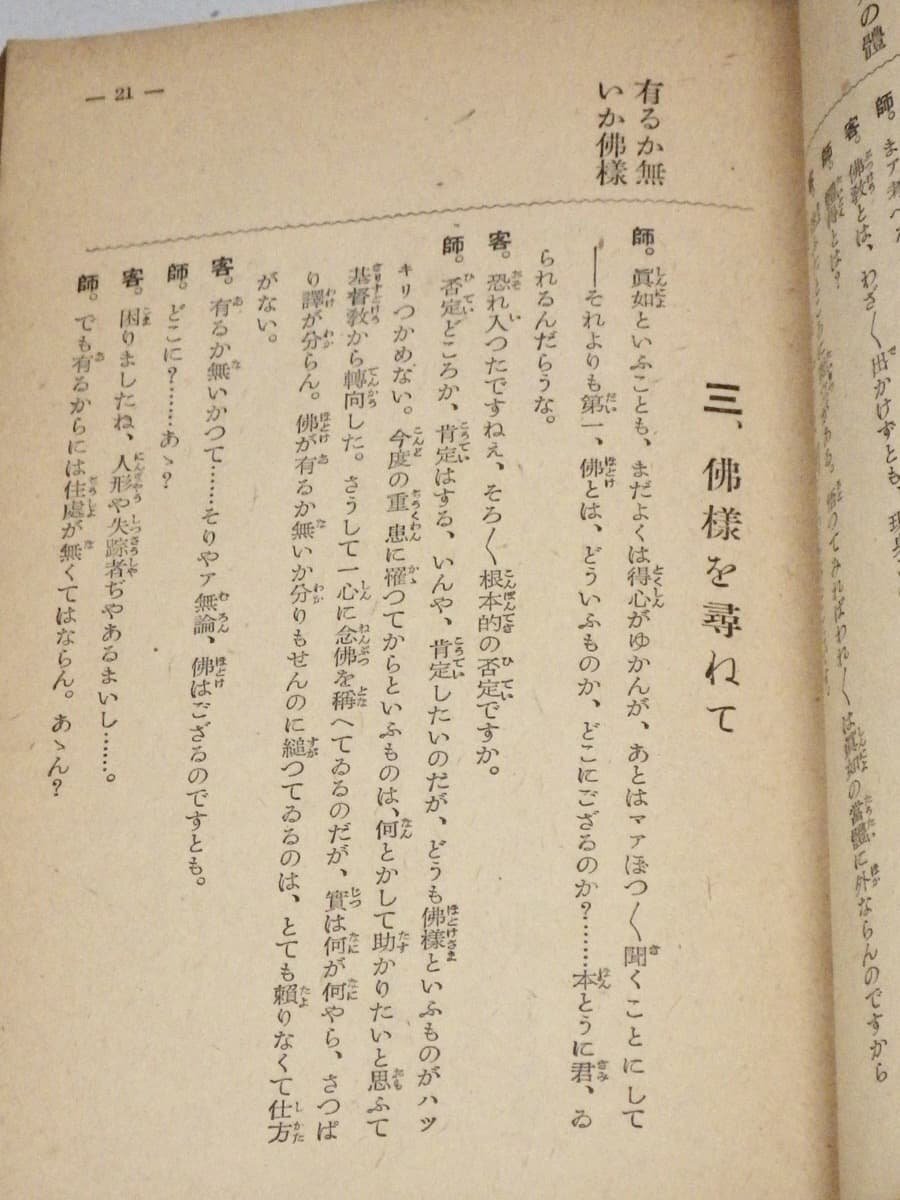 の體
師。まア考へ
客。佛敎とは、わざ〱出かけずとも、現
師。
は眞如の當體に外ならんのですから
三、佛樣を尋ねて
有るか無
いか佛樣
師。眞如といふことも、まだよくは得心がゆかんが、あとはマアぼつ〱聞くことにして
――それよりも第一、佛とは、どういふものか、どこにござるのか?………本とうに君、ゐ
られるんだらうな。
客。恐れ入つたですねえ、そろ〱根本的の否定ですか。
師。否定どころか、肯定はする、いんや、肯定したいのだが、どうも佛樣といふものがハツ
キリつかめない。今度の重患に罹つてからといふものは、何とかして助かりたいと思ふて
基督敎から轉向した。さうして一心に念佛を稱へてゐるのだが、實は何が何やら、さつぱ
り譯が分らん。佛が有るか無いか分りもせんのに縋つてゐるのは、とても賴りなくて仕方
がない。
客。有るか無いかつて……そりやア無論、佛はござるのですとも。
師。どこに?……あゝ?
客。困りましたね、人形や失踪者ぢやあるまいし……。
師。でも有るからには住處が無くてはならん。あゝん?
― 21 ―